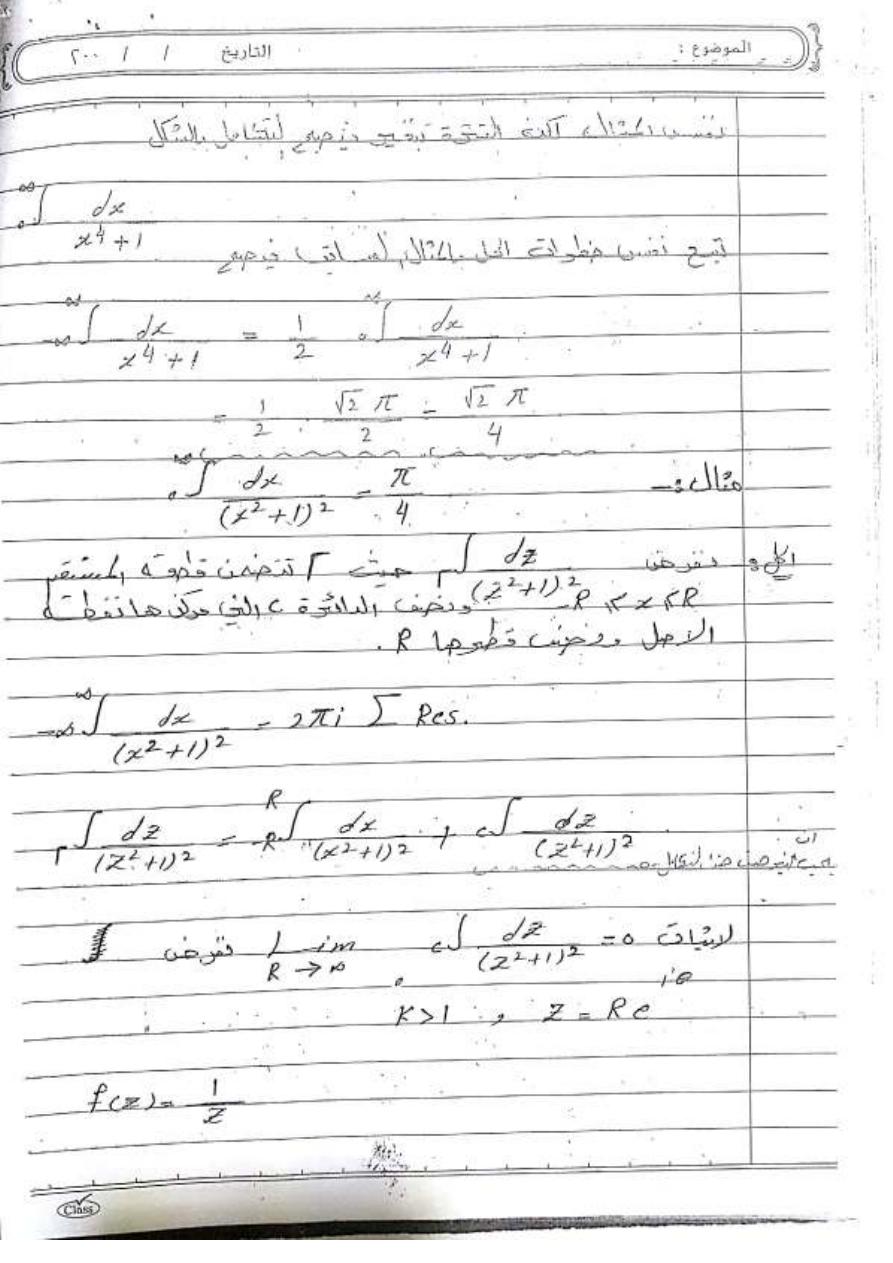 الموضوع :
التاريخ / / ٢٠٠
نفس المثال
∞∫₀ dx / (x⁴ + 1)
تتبع نفس خطوات الحل بالمثال السابق فيصبح
∞∫₋∞ dx / (x⁴ + 1) = 1/2 ∞∫₀ dx / (x⁴ + 1)
= 1/2 · √2 π / 2 = √2 π / 4
مثال :- ∞∫₀ dx / (x² + 1)² = π / 4
الحل : نفرض Γ∫ dz / (z² + 1)² حيث Γ تتضمن قطعة المستقيم
-R ≤ x ≤ R ونصف الدائرة c التي مركزها نقطة
الاصل ونصف قطرها R .
∞∫₋∞ dx / (x² + 1)² = 2πi Σ Res.
Γ∫ dz / (z² + 1)² = R∫₋R dx / (x² + 1)² + c∫ dz / (z² + 1)²
هذا التكامل
لاثبات Lim R → ∞ c∫ dz / (z² + 1)² = 0 نفرض
K > 1 , z = Re^iθ
f(z) = 1 / z
Class